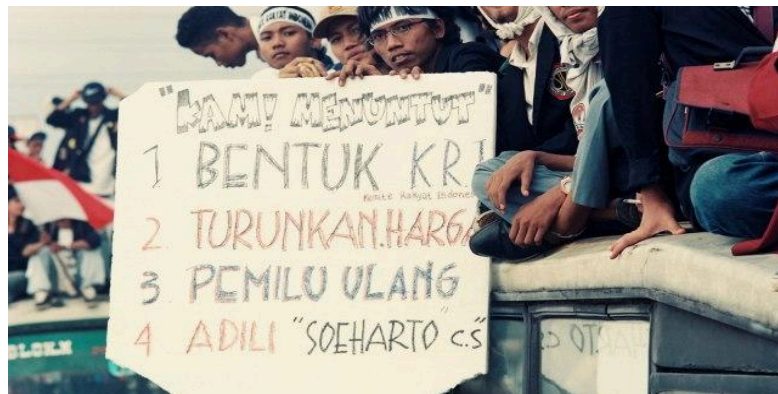 "KAMI MENUNTUT"
1 BENTUK KRI
Komite Rakyat Indones
2. TURUNKAN.HARGA
3 PEMILU ULANG
4 ADILI "SOEHARTO" C.S"
BLOK.M